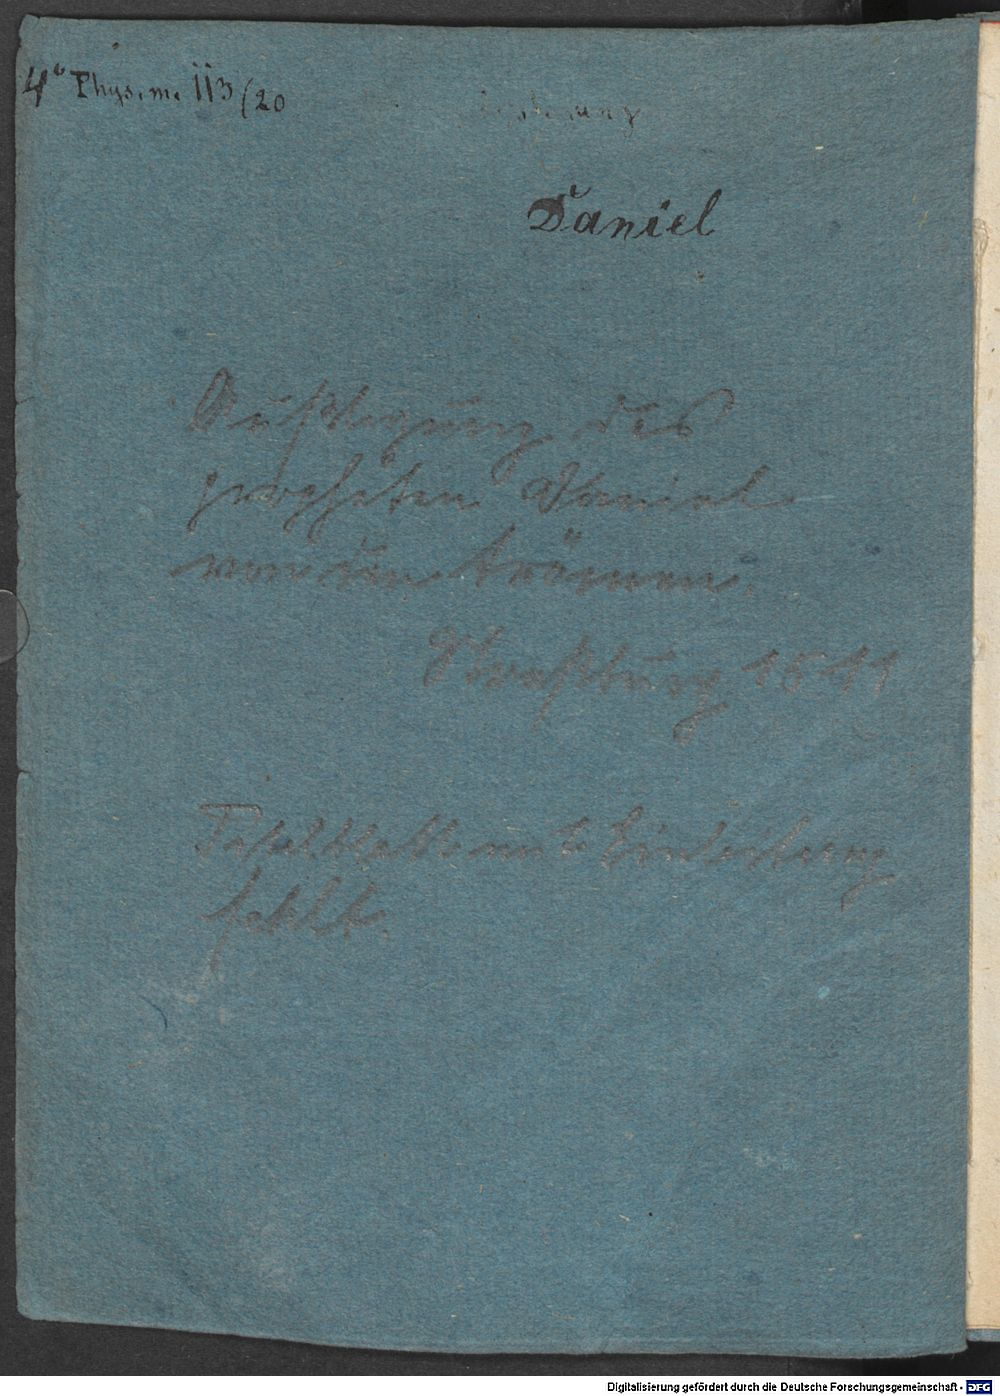 4° Phys. m. 113/20
Daniel
Außlegung des
propheten Daniel
von den trömen.
Straßburg 1511
Titelblatt mit Einleitung
fehlt.
Digitalisierung gefördert durch die Deutsche Forschungsgemeinschaft - DFG